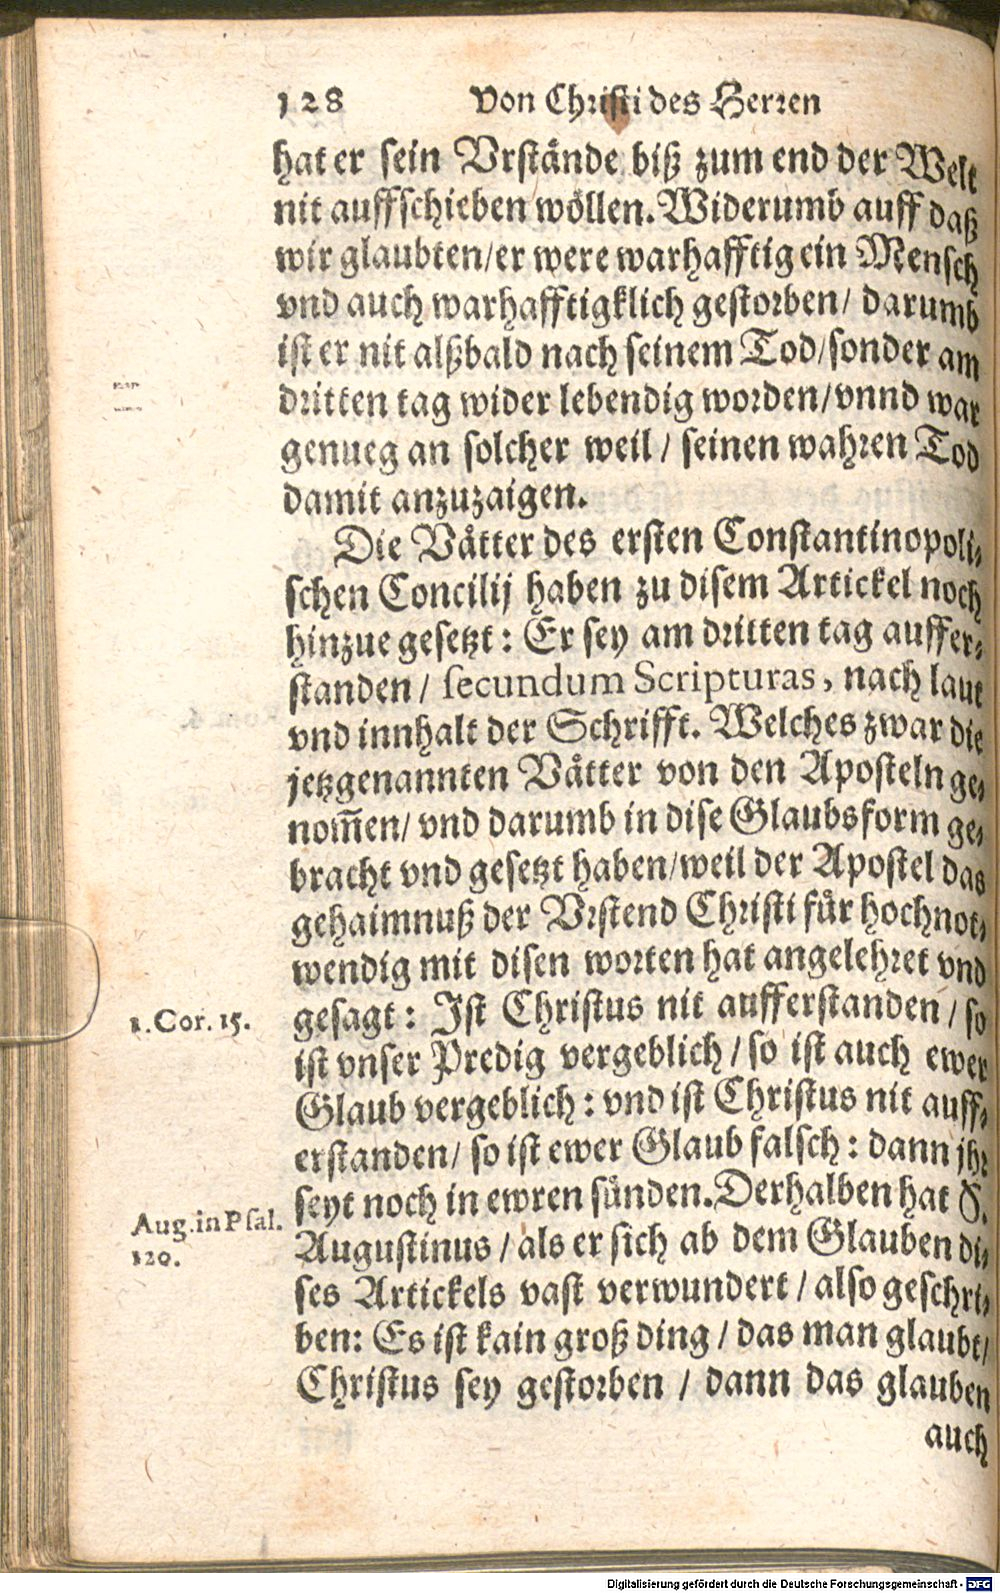 128 Von Christi des Herren
hat er sein Vrstände biß zum end der Welt
nit auffschieben wöllen. Widerumb auff daß
wir glaubten/ er were warhafftig ein Mensch
vnd auch warhafftigklich gestorben/ darumb
ist er nit alßbald nach seinem Tod/ sonder am
dritten tag wider lebendig worden/ vnnd war
genueg an solcher weil / seinen wahren Tod
damit anzuzaigen.
Die Vätter des ersten Constantinopoli-
schen Concilij haben zu disem Artickel noch
hinzue gesetzt: Er sey am dritten tag auffer-
standen / secundum Scripturas, nach laut
vnd innhalt der Schrifft. Welches zwar die
jetzgenannten Vätter von den Aposteln ge-
nom̃en/ vnd darumb in dise Glaubsform ge-
bracht vnd gesetzt haben/ weil der Apostel das
gehaimnuß der Vrstend Christi für hochnot-
wendig mit disen worten hat angelehret vnd
1. Cor. 15.
gesagt: Ist Christus nit aufferstanden / so
ist vnser Predig vergeblich / so ist auch ewer
Glaub vergeblich: vnd ist Christus nit auff-
erstanden/ so ist ewer Glaub falsch: dann jhr
seyt noch in ewren sünden. Derhalben hat S.
Aug. in Psal.
120.
Augustinus / als er sich ab dem Glauben di-
ses Artickels vast verwundert / also geschri-
ben: Es ist kain groß ding / das man glaubt/
Christus sey gestorben / dann das glauben
auch
Digitalisierung gefördert durch die Deutsche Forschungsgemeinschaft - DFG